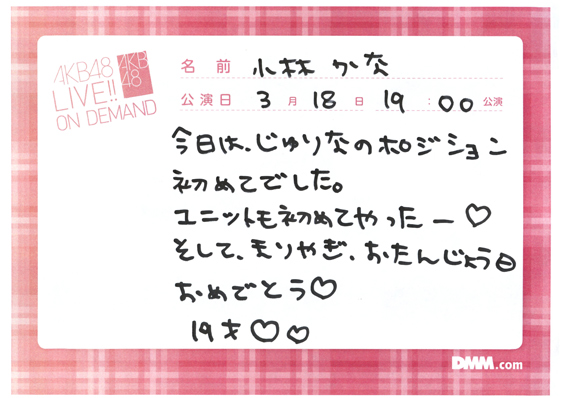 AKB48
LIVE!!
ON DEMAND
AKB
48
名前 小林 かな
公演日 3月18日 19:00公演
今日は、じゅりなのポジション
初めてでした。
ユニットも初めてやったー♡
そして、えりやぎ、おたんじょう日
おめでとう♡
19才♡♡
DMM.com